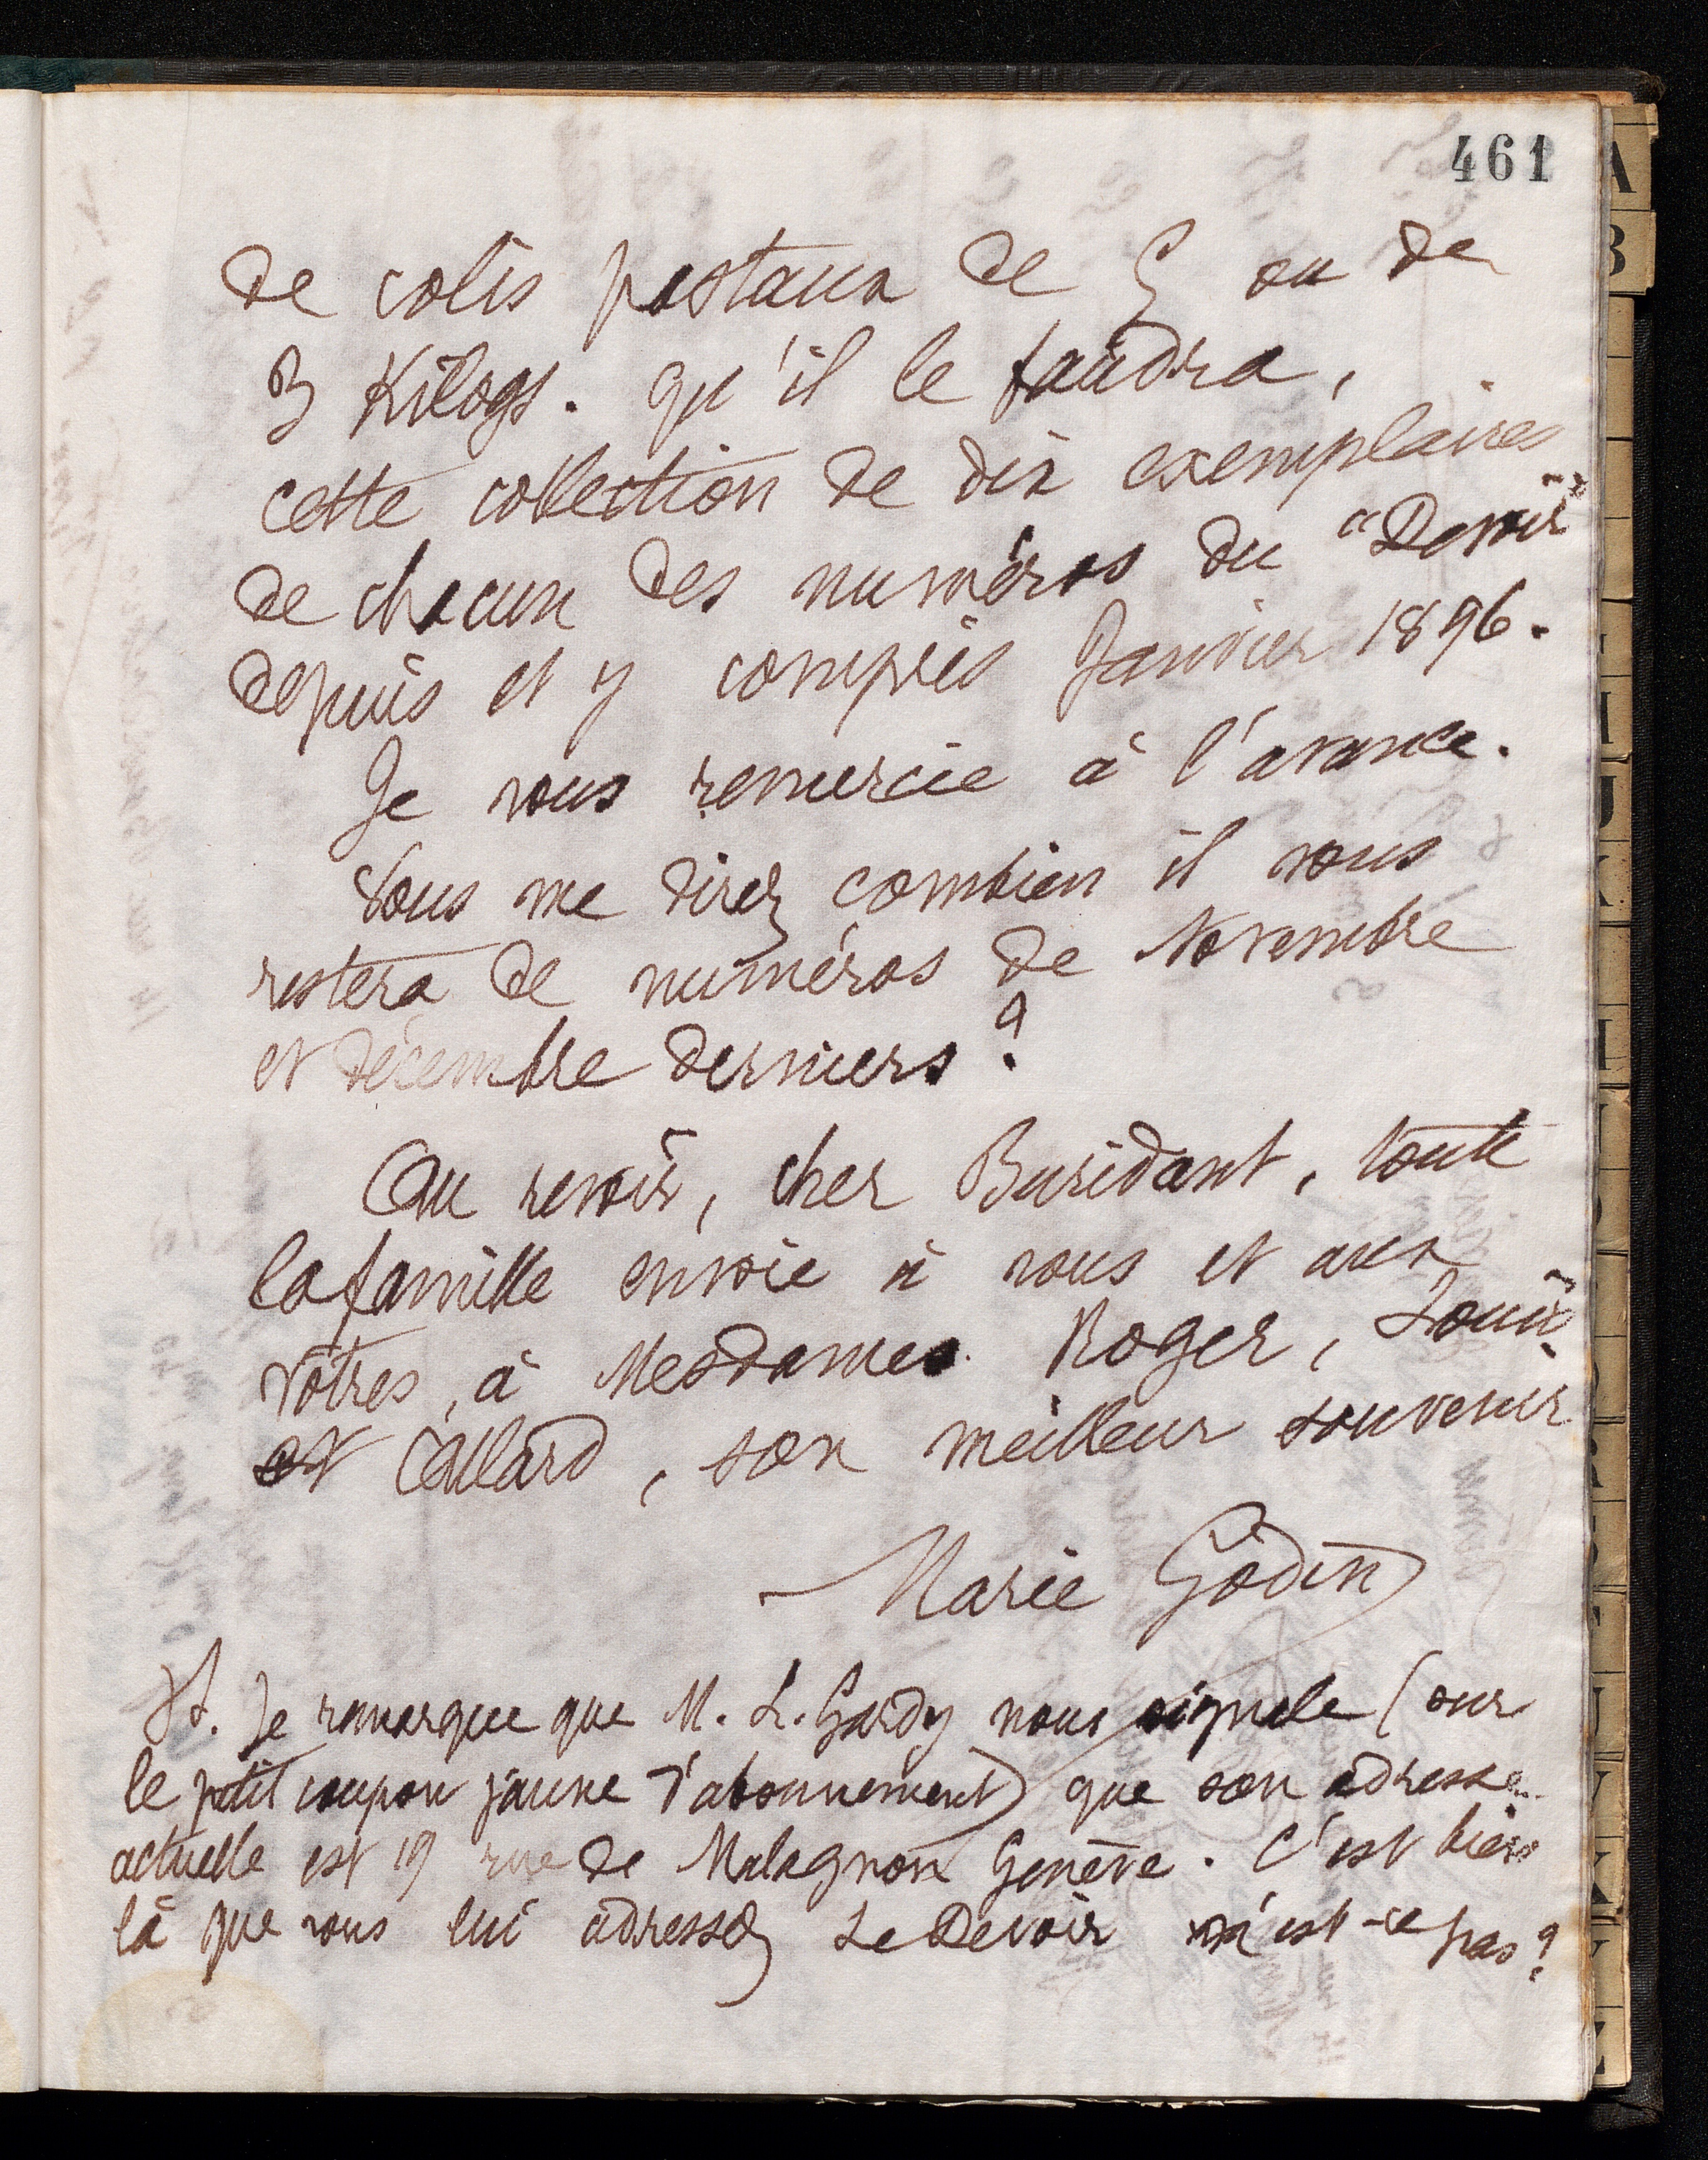 461
de colis postaux de 5 ou de
3 Kilogs. qu'il le faudra,
cette collection de dix exemplaires
de chacun des numéros du "Devoir"
depuis et y compris Janvier 1896.
Je vous remercie à l'avance.
Vous me direz combien il vous
restera de numéros de Novembre
et décembre derniers ?
Au revoir, cher Buridant, toute
la famille envoie à vous et aux
vôtres, à Mesdames Roger, Louis
et Allard, son meilleur souvenir
Marie Godin
PS. Je remarque que M. L. Gardy nous signale (sur
le petit coupon jaune d'abonnement) que son adresse
actuelle est 19 rue de Malagnon Genève. C'est bien
là que vous lui adressez Le Devoir n'est-ce pas ?